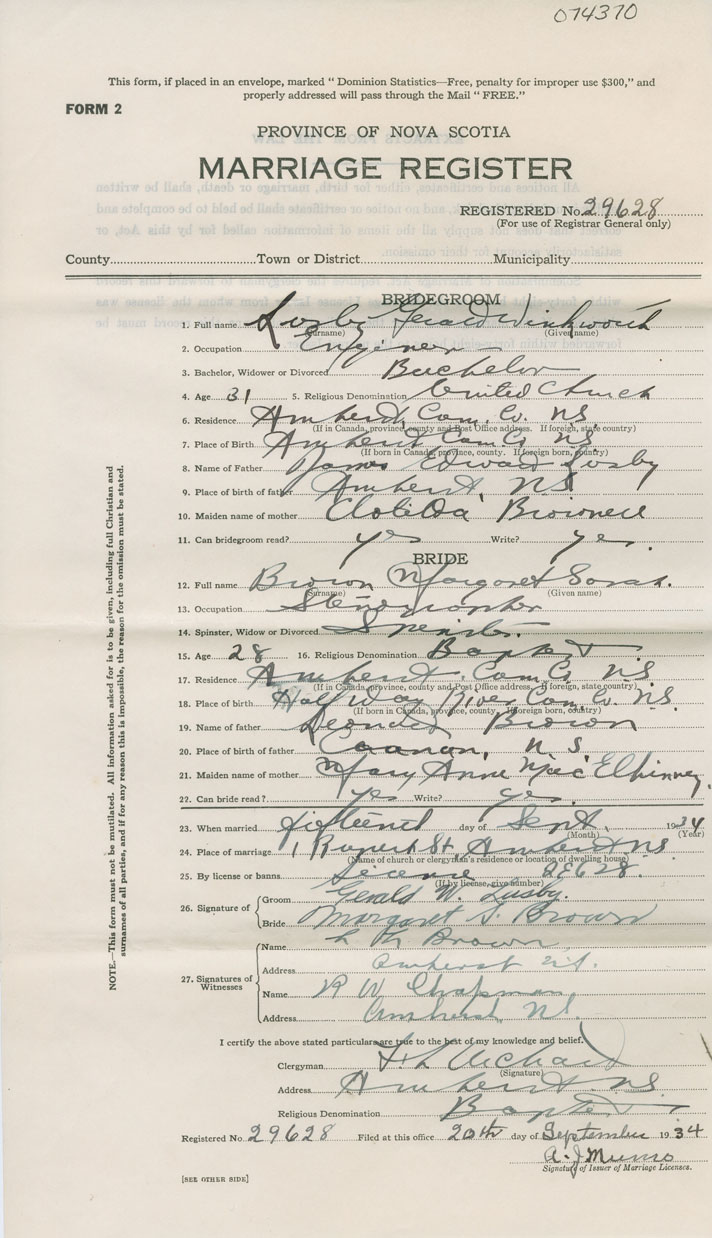 074370
This form, if placed in an envelope, marked " Dominion Statistics—Free, penalty for improper use $300," and
properly addressed will pass through the Mail " FREE."
FORM 2
PROVINCE OF NOVA SCOTIA
MARRIAGE REGISTER
REGISTERED No. 29628
(For use of Registrar General only)
County Town or District Municipality
BRIDEGROOM
1. Full name Lusby Gerald Winkworth
(Surname) (Given name)
2. Occupation Engineer
3. Bachelor, Widower or Divorced Bachelor
4. Age 31 5. Religious Denomination United Church
6. Residence Amherst, Cum. Co. NS
(If in Canada, province, county and Post Office address. If foreign, state country)
7. Place of Birth Amherst Cum Co NS
(If born in Canada, province, county. If foreign born, country)
8. Name of Father James Edward Lusby
9. Place of birth of father Amherst, NS
10. Maiden name of mother Clotilda Brownell
11. Can bridegroom read? yes Write? yes.
BRIDE
12. Full name Brown Margaret Sarah.
(Surname) (Given name)
13. Occupation Stenographer
14. Spinster, Widow or Divorced Spinster.
15. Age 28 16. Religious Denomination Baptist
17. Residence Amherst. Cum. Co. NS
(If in Canada, province, county and Post Office address. If foreign, state country)
18. Place of birth Half Way River Cum. Co. N.S.
(If born in Canada, province, county. If foreign born, country)
19. Name of father Leonard Brown
20. Place of birth of father Canaan, N. S
21. Maiden name of mother Mary Anne MacElhinney.
22. Can bride read? yes Write? yes.
23. When married fifteenth day of Sept. 1934
(Month) (Year)
24. Place of marriage 1 Rupert St. Amherst NS
(Name of church or clergyman's residence or location of dwelling house)
25. By license or banns License 29628.
(If by license, give number)
26. Signature of
Groom Gerald W. Lusby.
Bride Margaret S. Brown
27. Signatures of Witnesses
Name Brown
Address Amherst N.S.
Name R W Chapman
Address Amherst, NS.
I certify the above stated particulars are true to the best of my knowledge and belief.
Clergyman
(Signature)
Address Amherst NS.
Religious Denomination Baptist
Registered No. 29628 Filed at this office 20th day of September 1934
A. J Munro
Signature of Issuer of Marriage Licenses.
[SEE OTHER SIDE]
NOTE.—This form must not be mutilated. All information asked for is to be given, including full Christian and
surnames of all parties, and if for any reason this is impossible, the reason for the omission must be stated.